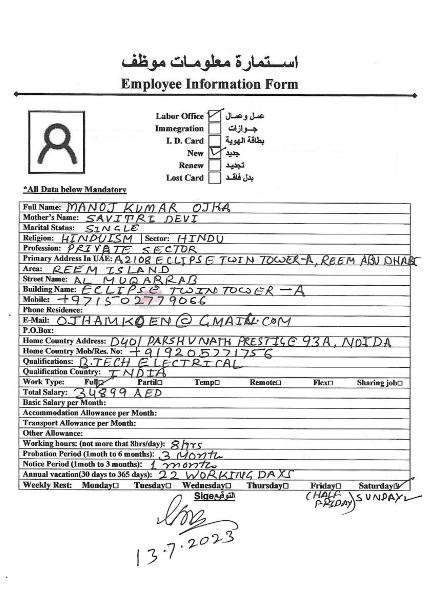 استمارة معلومات موظف
Employee Information Form
Labor Office عمل وعمال
Immegration جوازات
I. D. Card بطاقة الهوية
New جديد
Renew تجديد
Lost Card بدل فاقد
*All Data below Mandatory
Full Name: MANOJ KUMAR OJHA
Mother's Name: SAVITRI DEVI
Marital Status: SINGLE
Religion: HINDUISM Sector: HINDU
Profession: PRIVATE SECTOR
Primary Address In UAE: A2108 ECLIPSE TWIN TOWER-A, REEM ABU DHABI
Area: REEM ISLAND
Street Name: AL MUQARRAB
Building Name: ECLIPSE TWIN TOWER -A
Mobile: +971502779066
Phone Residence:
E-Mail: OJHAMKOEN@GMAIL.COM
P.O.Box:
Home Country Address: D401 PARSHVNATH PRESTIGE 93A, NOIDA
Home Country Mob/Res. No: +919205771756
Qualifications: B.TECH ELECTRICAL
Qualification Country: INDIA
Work Type: Full Partil Temp Remote Flex Sharing job
Total Salary: 34899 AED
Basic Salary per Month:
Accommodation Allowance per Month:
Transport Allowance per Month:
Other Allowance:
Working hours: (not more that 8hrs/day): 8hrs
Probation Period (1moth to 6 months): 3 Month
Notice Period (1moth to 3 months): 1 month
Annual vacation(30 days to 365 days): 22 WORKING DAYS
Weekly Rest: Monday Tuesday Wednesday Thursday Friday Saturday
(HALF FRIDAY) SUNDAY
Sige التوقيع
13.7.2023